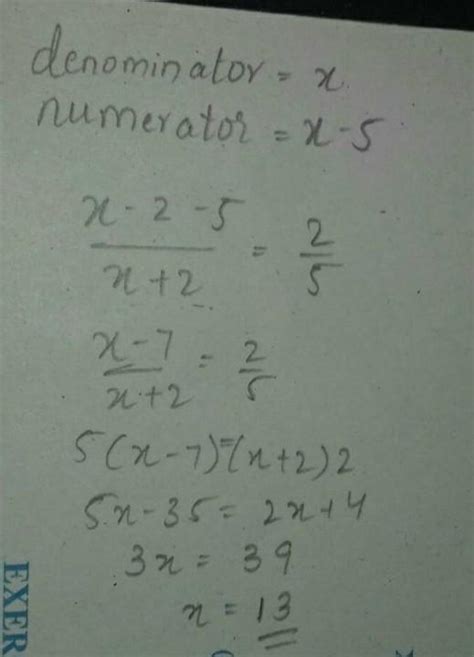 denominator = x
numerator = x - 5
x - 2 - 5 / x + 2 = 2 / 5
x - 7 / x + 2 = 2 / 5
5(x - 7) = (x + 2) 2
5x - 35 = 2x + 4
3x = 39
x = 13
EXER